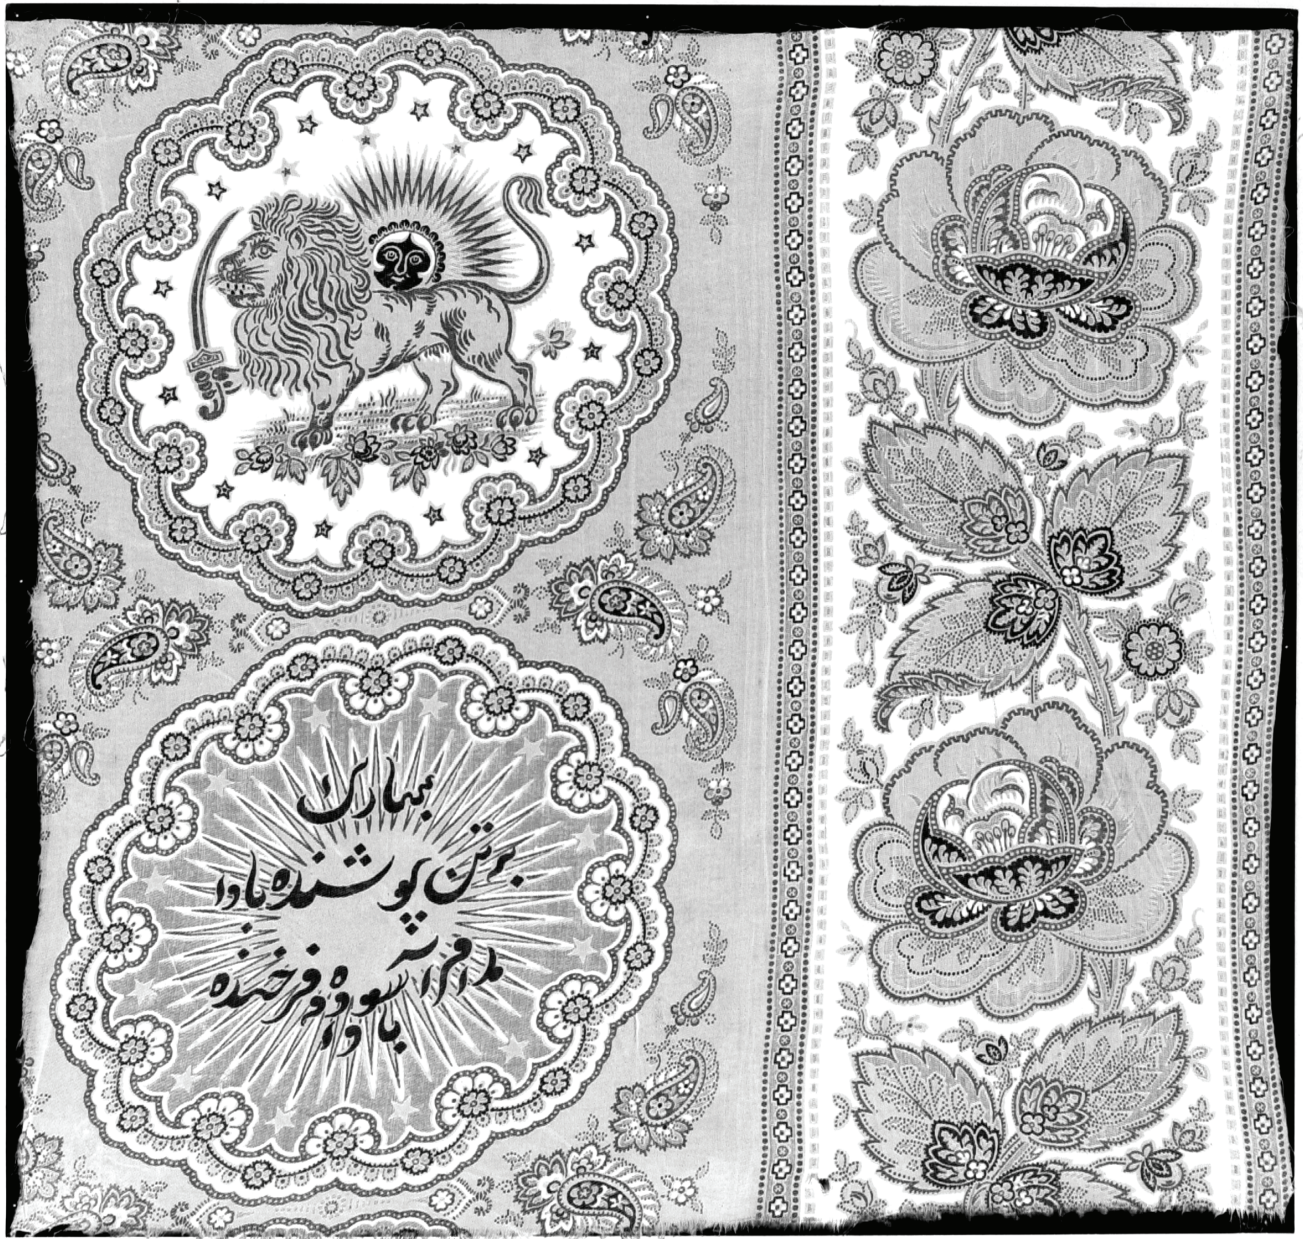 مبارک
برتن پوشنده بادا
آسوده و فرخنده
بادا